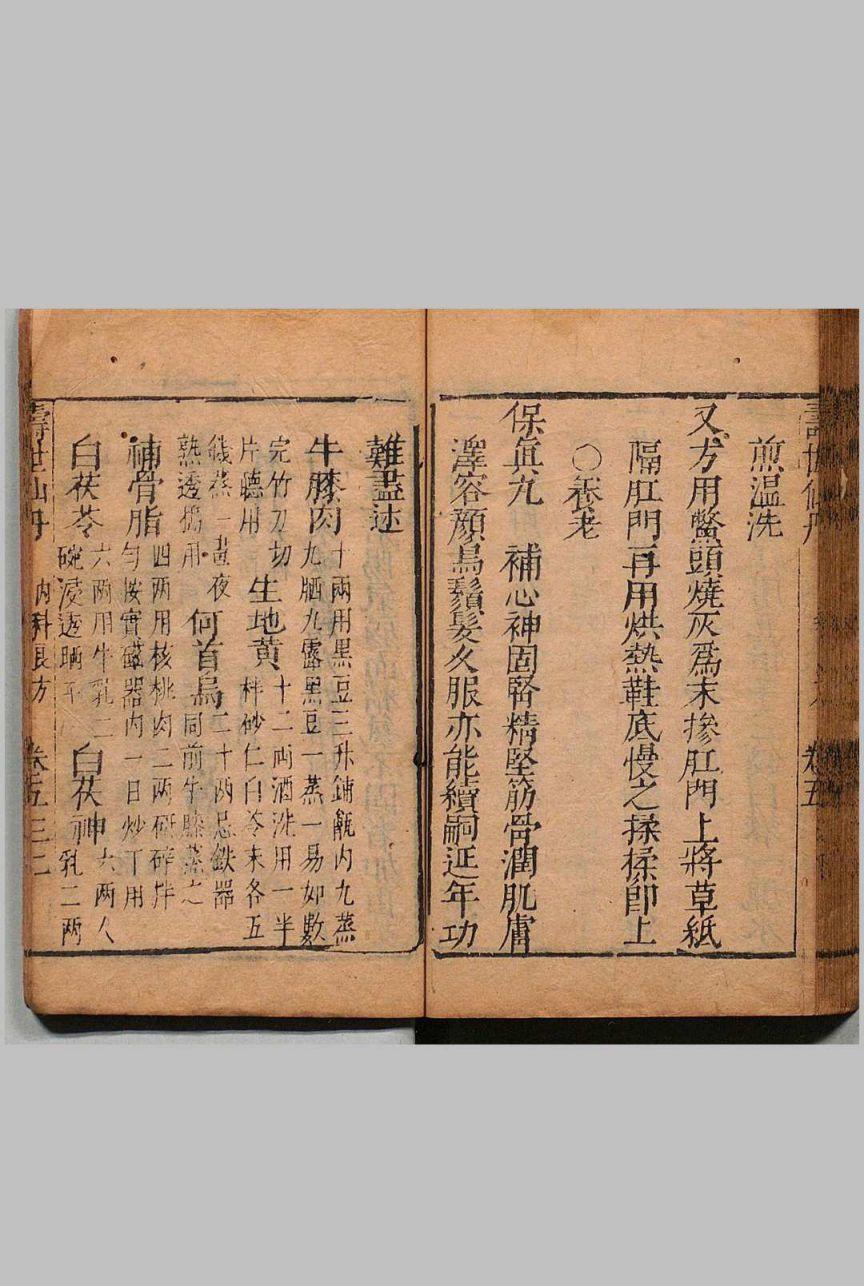 煎温洗
又方用鱉頭燒灰爲末摻肛門上將草紙
隔肛門再用烘熱鞋底慢之揉揉卽上
○養老
保眞丸　補心神固腎精堅筋骨潤肌膚
澤容顔烏鬚髮久服亦能續嗣延年功
難盡述
牛膝肉
十兩用黑豆三升鋪甑内九蒸
九晒九露黑豆一蒸一易如數
完竹刀切
片聽用
生地黄
十二兩酒洗用一半
拌砂仁白芩末各五
錢蒸一晝夜
熟透搗用
何首烏
二十兩忌鉄器
同前牛膝蒸之
補骨脂
四两用核桃肉二两研碎拌
匀按實磁器内一日炒丁用
白茯苓
六两用牛乳二
碗浸透晒
白茯神
六两人
乳二两
壽世仙丹　内科良方　卷五　三二